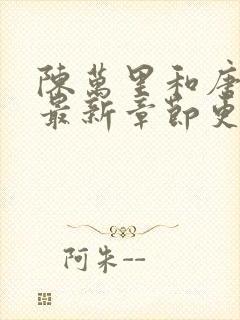 陳萬里和唐
最新章節更
阿朱--